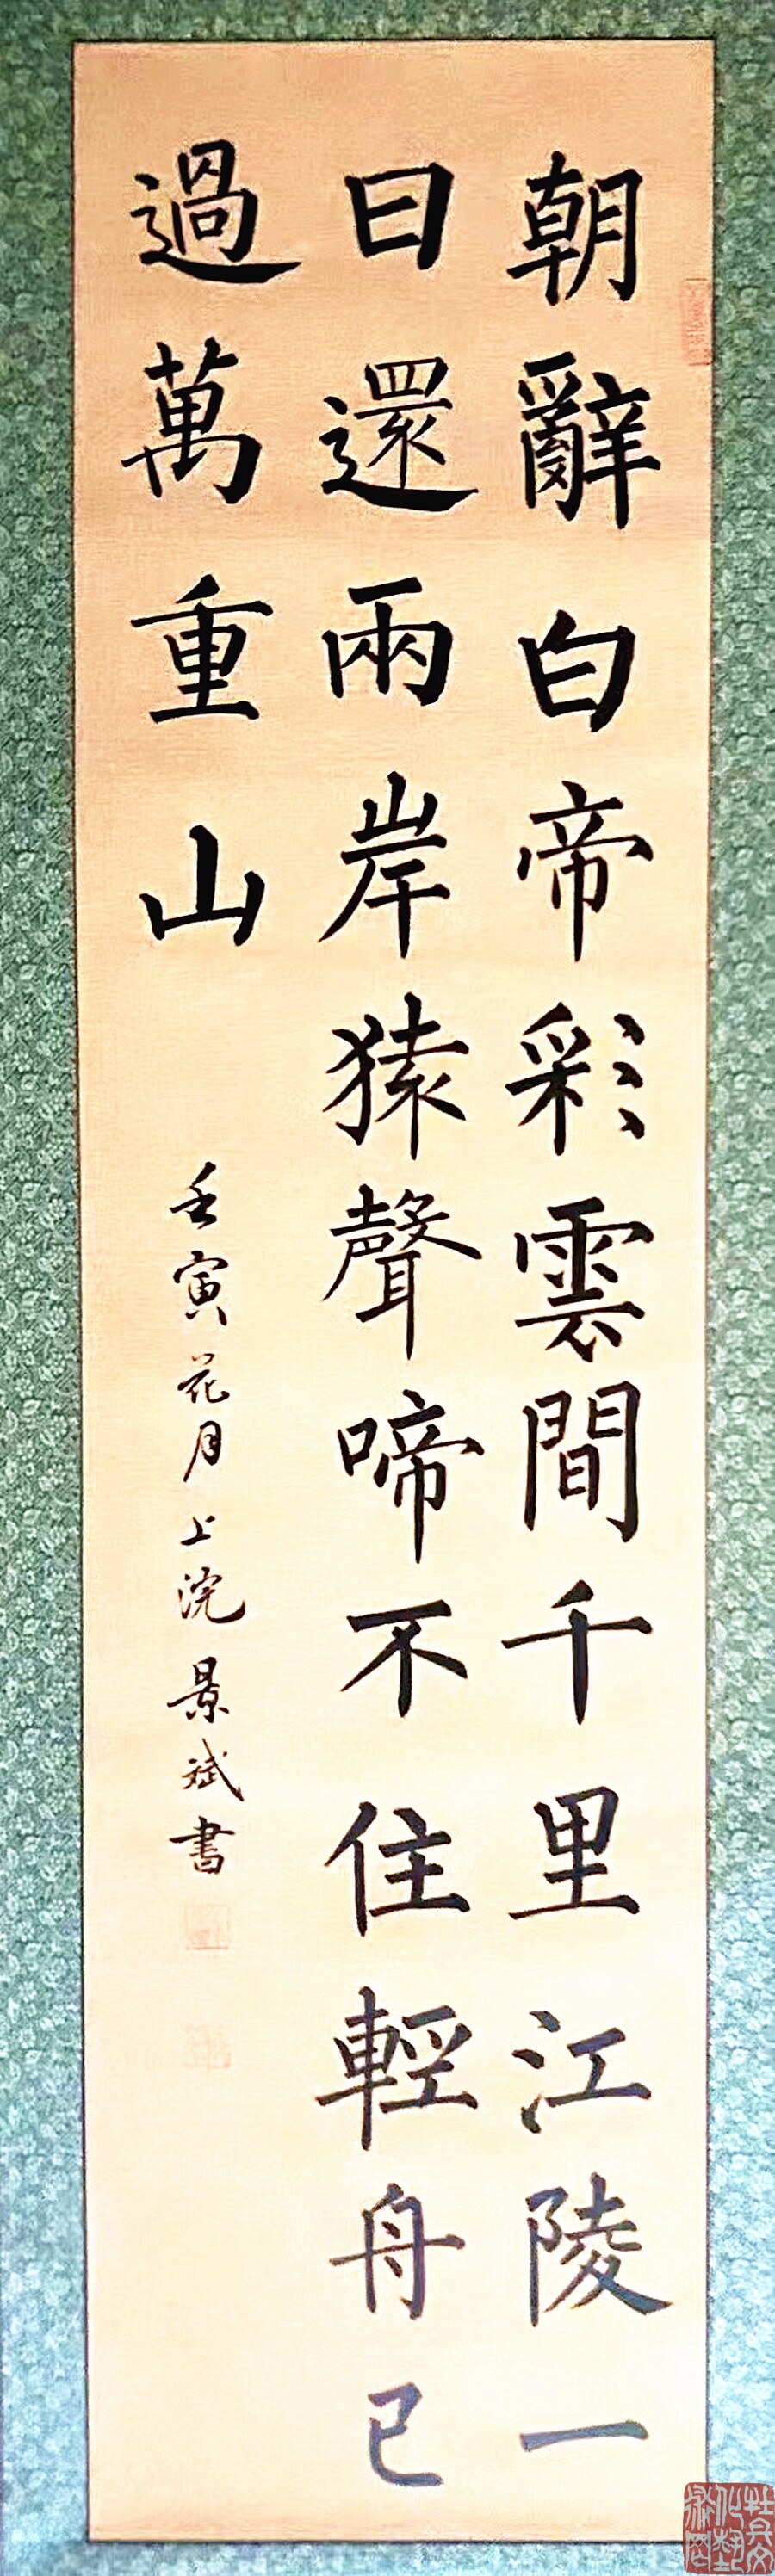 朝辭白帝彩雲間千里江陵一
日還兩岸猿聲啼不住輕舟已
過萬重山
壬寅花月上浣景斌書